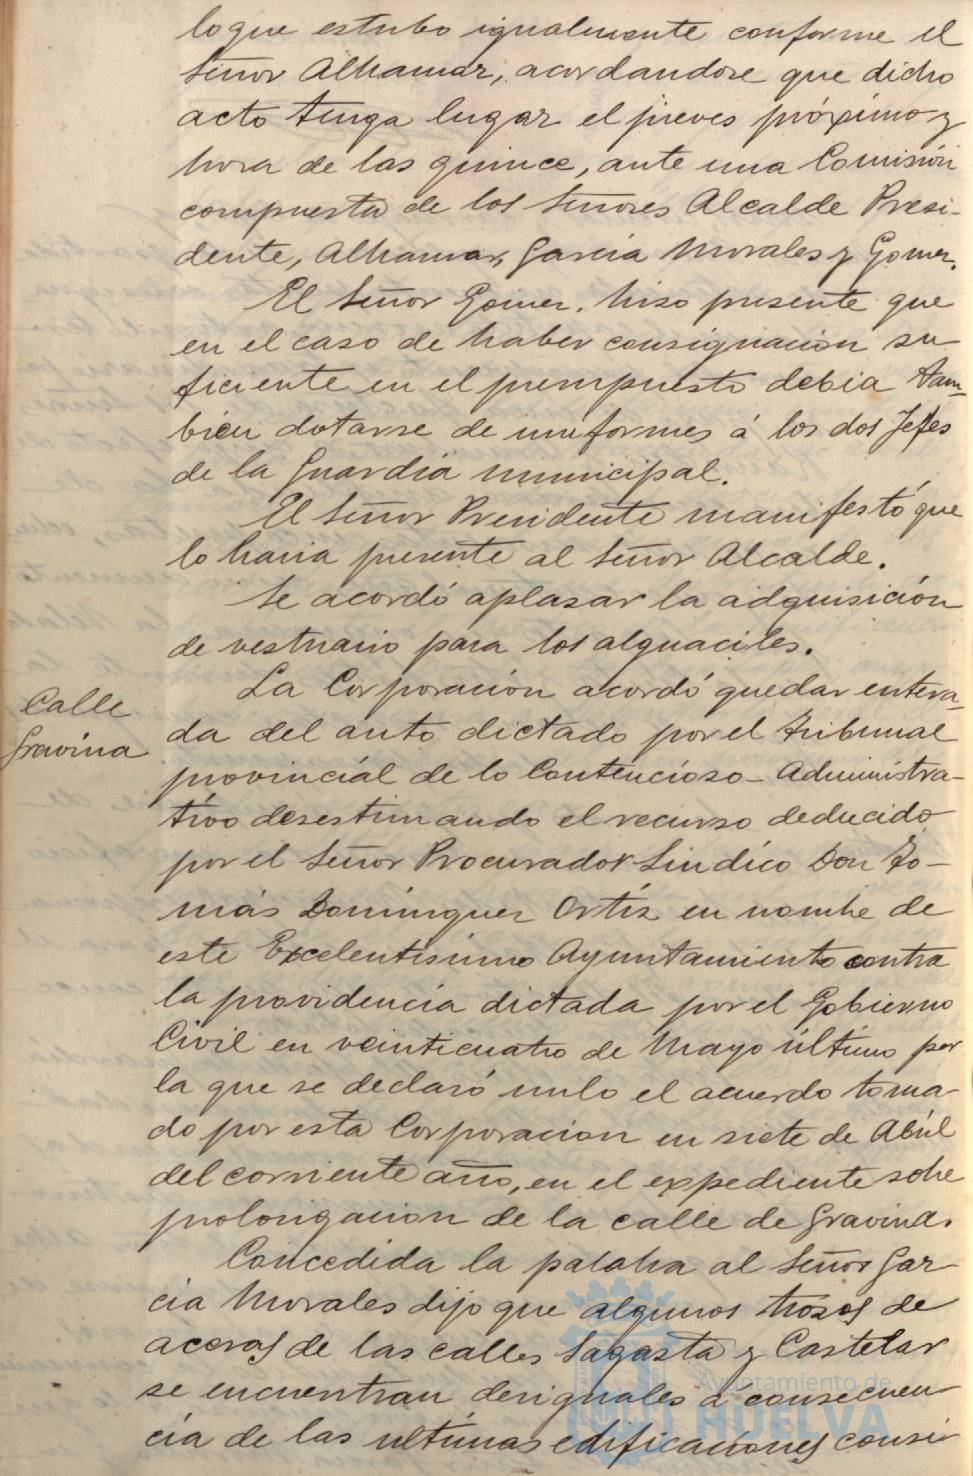 lo que estubo igualmente conforme el
Señor Alhamar, acordandose que dicho
acto tenga lugar el jueves próximo y
hora de las quince, ante una Comisión
compuesta de los Señores Alcalde Presi-
dente, Alhamar, García Morales y Gomez.
El Señor Gomez. hizo presente que
en el caso de haber consignacion su
ficiente en el presupuesto debia tam-
bién dotarse de uniformes á los dos Jefes
de la Guardia municipal.
El Señor Presidente manifestó que
lo haria presente al Señor Alcalde.
Se acordó aplazar la adquisición
de vestuario para los alguaciles.
Calle
Gravina
La Corporación acordó quedar entera-
da del auto dictado por el Tribunal
provincial de lo Contencioso-Administra-
tivo desestimando el recurso deducido
por el Señor Procurador Sindico Don To-
más Domínguez Ortíz en nombre de
este Excelentisimo Ayuntamiento contra
la providencia dictada por el Gobierno
Civil en veinticuatro de Mayo último por
la que se declaró nulo el acuerdo toma-
do por esta Corporacion en siete de Abril
del corriente año, en el expediente sobre
prolongacion de la calle de Gravina.
Concedida la palabra al Señor Gar-
cia Morales dijo que algunos trozos de
aceras de las calles Sagasta y Castelar
se encuentran desiguales á consecuen-
cia de las ultimas edificaciones consi-
Ayuntamiento de
HUELVA